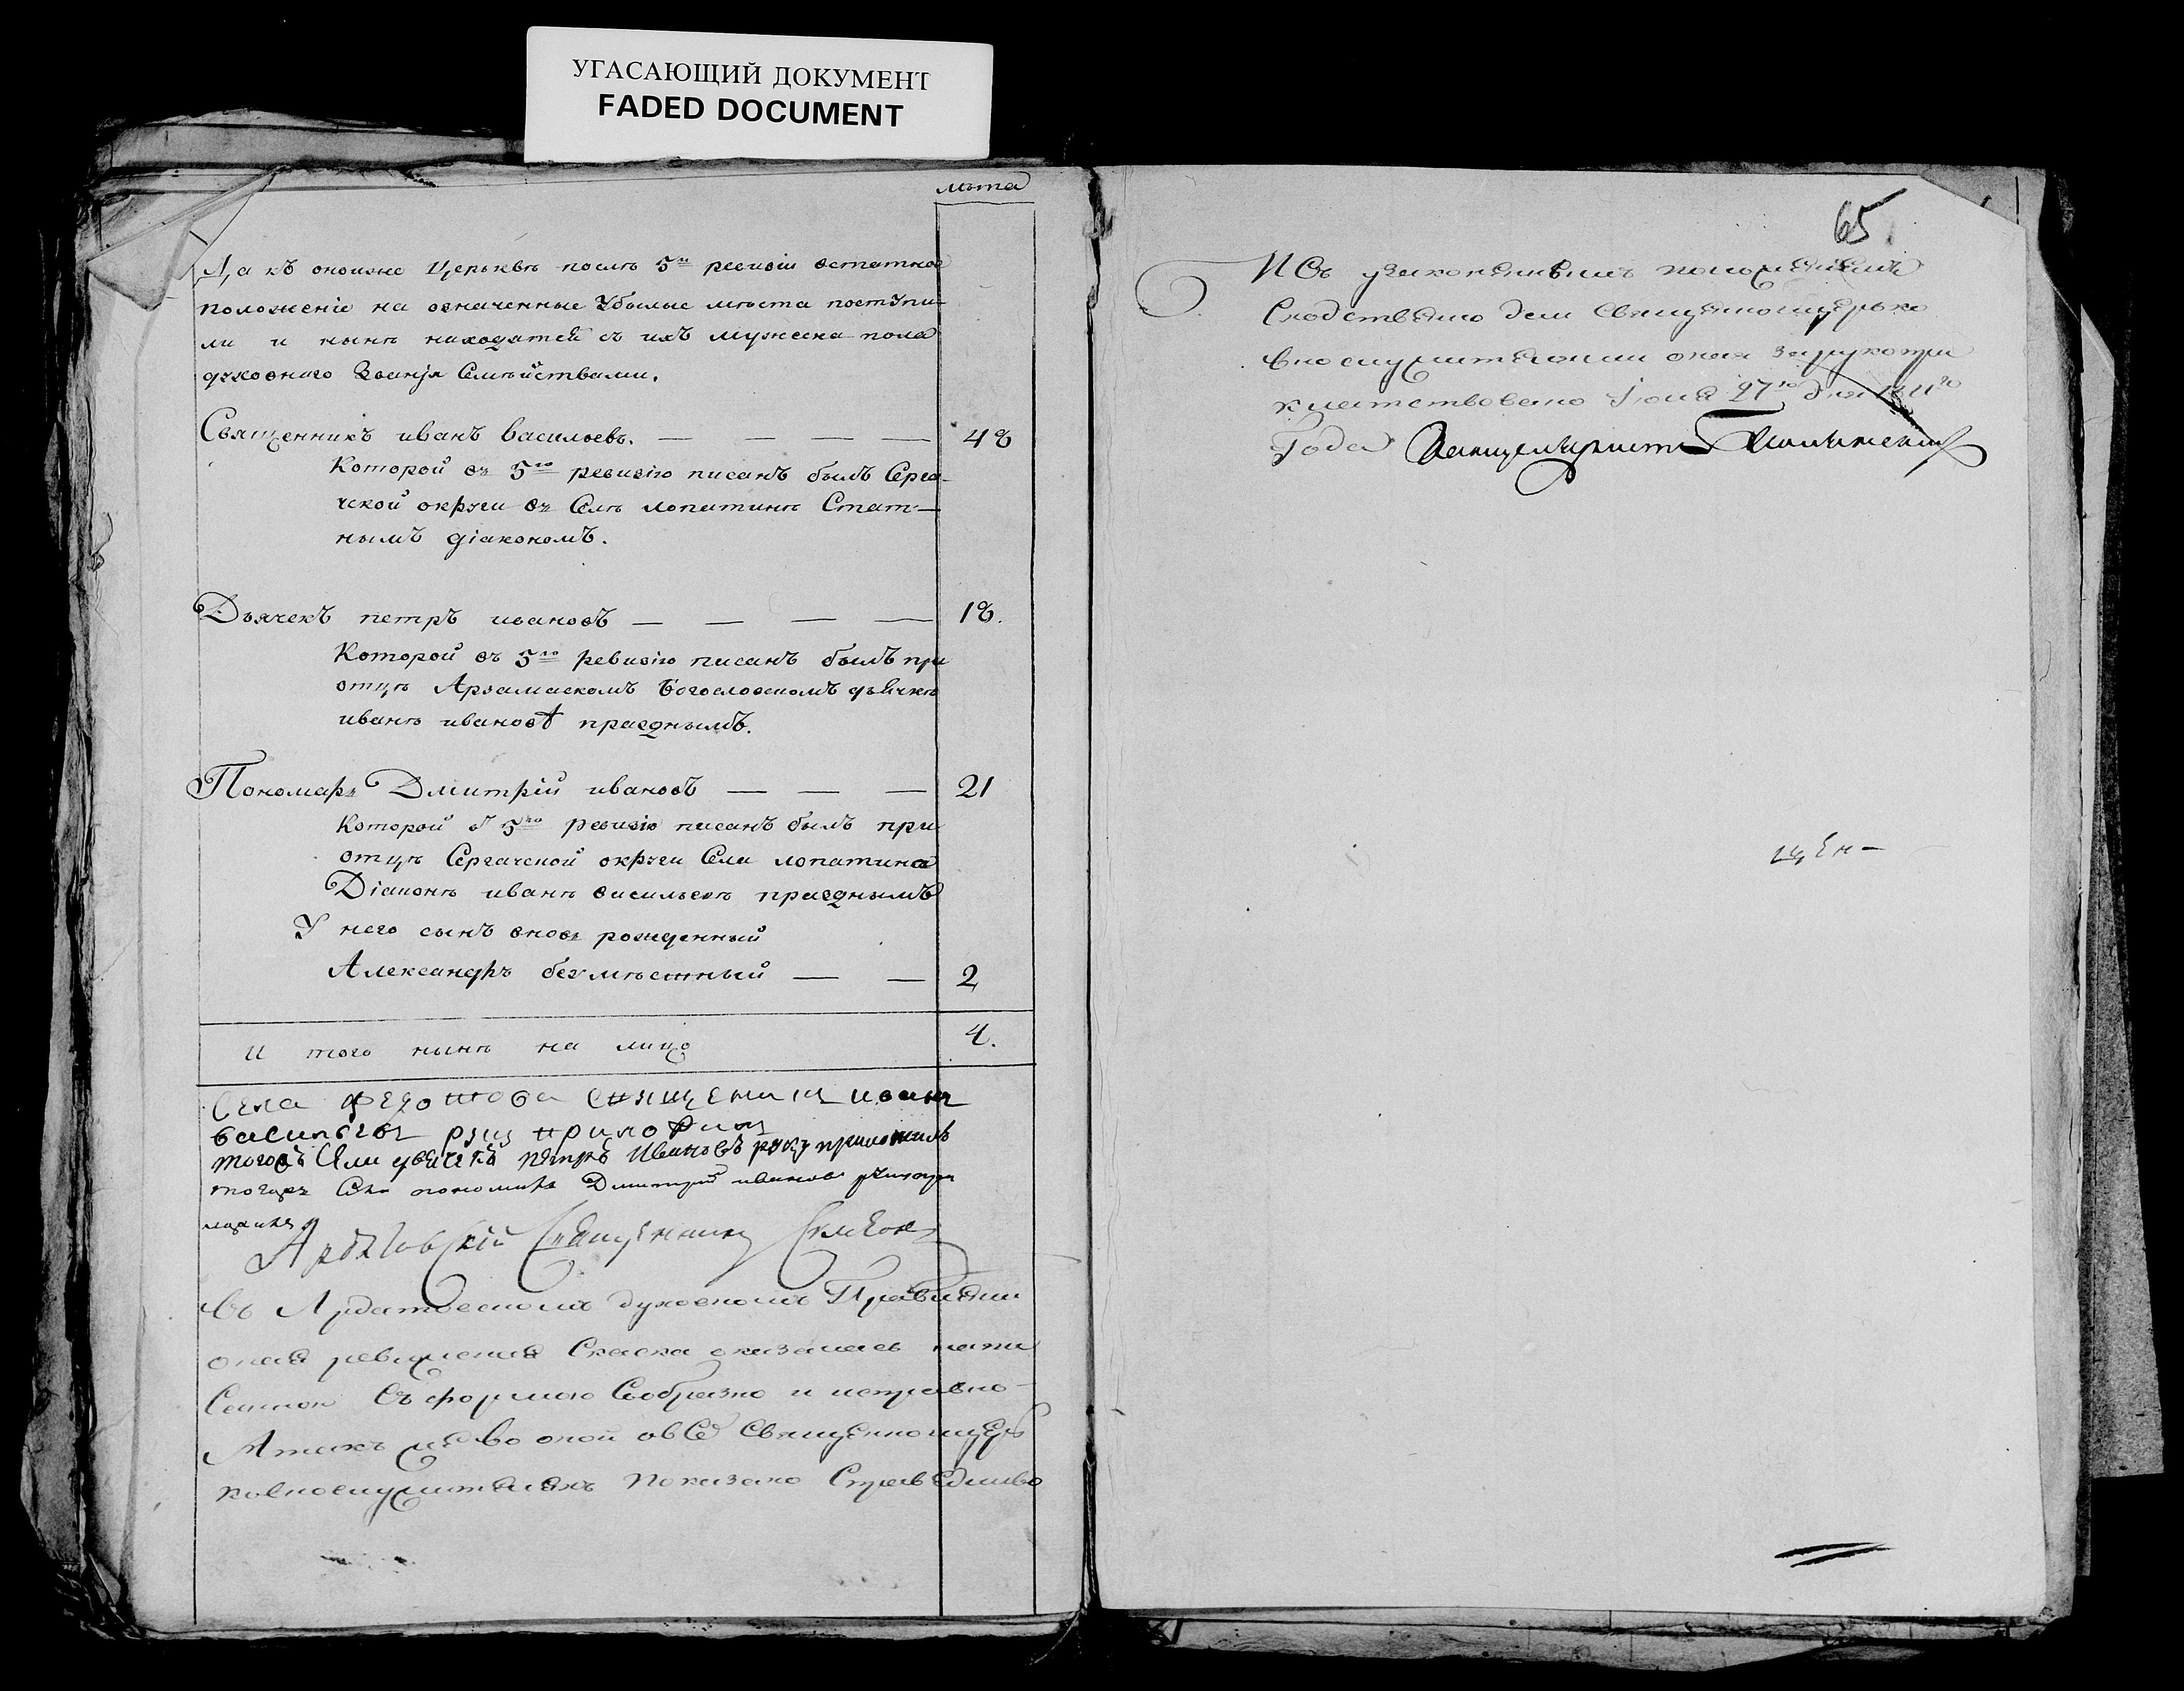 УГАСАЮЩИЙ ДОКУМЕНТ
FADED DOCUMENT
лѣта
Да къ оноиже Церьквѣ послѣ 5й ревизіи остатное
положеніе на означенные Убылые мѣста поступи-
ли и нынѣ находятся съ ихъ мужеска пола
духовнаго Званія Семѣйствами.
Священникъ иванъ васильевъ. — — — — 48
Которой въ 5ю ревизію писанъ былъ Серга-
чской округи въ Селѣ лопатинѣ Стат-
нымъ діакономъ.
Дьячекъ петръ ивановъ — — — — 18.
Которой въ 5ю ревизію писанъ былъ при
отцѣ Арзамаскомъ богословскомъ дьячкѣ
иванѣ ивановѣ празднымъ.
Пономарь Дмитрій ивановъ — — — 21
Которой въ 5ю ревизію писанъ былъ при
отцѣ Сергачской округи Села лопатина
Діаконѣ иванѣ васильевѣ празднымъ
У него сынъ вновь рожденный
Александръ безмѣстный — — 2
и того нынѣ на лицо 4.
Села федотова священникъ иванъ
васильевъ руку приложилъ
тогожъ Села дьячекъ петръ Ивановъ руку приложилъ
тогожъ Села пономарь Дмитрій ивановъ руку при
ложилъ
Священникъ Симеонъ
Въ Ардатовскомъ духовномъ Правлении
оная ревижская Скаска оказалась
Съ формою Сообразно и исправно
А такъ же во оной о всѣ Священноцер
ковнослужителяхъ показано Справедливо
65
И Съ узаконеннымъ положениемъ
Сходственно
вно служителями оная за руко при
кластвовано Июня 27го дня 1811го
Года Канцеляристъ